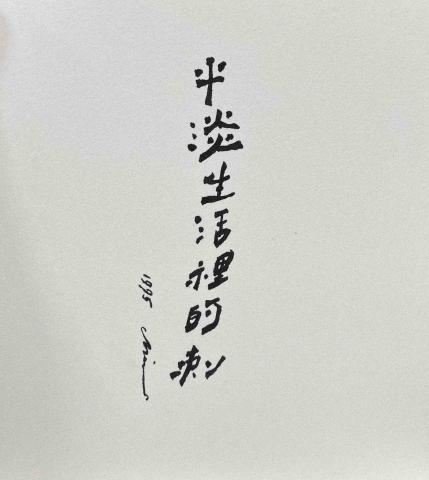 平淡生活裡的刺
1995